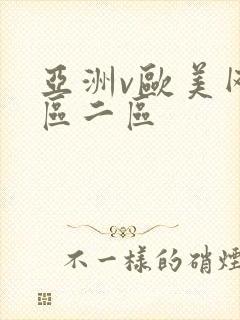 亞洲v歐美
區二區
不一樣的硝煙